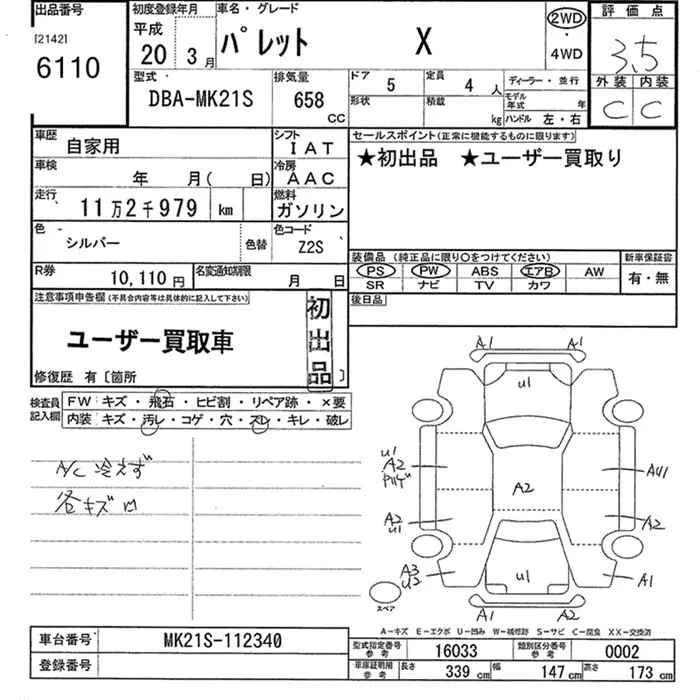 出品番号 初度登録年月 車名・グレード 評価点
[2142] 平成 2WD
6110 20年 3月 パレット X ・ 3.5
4WD
型式 排気量 ドア 5 定員 4人 ディーラー・並行 外装 内装
DBA-MK21S 658cc 形状 積載 kg モデル年式 年 C C
ハンドル 左・右
車歴 自家用 シフト IAT セールスポイント(正常に機能するものに限ります)
車検 年 月( 日) 冷房 AAC ★初出品 ★ユーザー買取り
走行 11万2千979 km 燃料 ガソリン
色 シルバー 色替 色コード Z2S
装備品 (純正品に限り○をつけてください) 新車保証書
R券 10,110円 名変通知期限 月 日 PS PW ABS エアB AW 有・無
SR ナビ TV カワ
注意事項申告欄(不具合内容等は具体的に記入して下さい) 後日品
ユーザー買取車 初出品
修復歴 有〔箇所 〕
検査員記入欄 FW キズ・飛石・ヒビ割・リペア跡・×要
内装 キズ・汚レ・コゲ・穴・スレ・キレ・破レ
A/C 冷えず
各キズ凹
A1 A1
U1
U1
A2 AU1
A2
A2 A2
U1
A3 U1 A1
U2
A1 A2
スペア
A-キズ E-エクボ U-凹み W-補修跡 S-サビ C-腐食 XX-交換済
車台番号 MK21S-112340 型式指定番号 参考 16033 類別区分番号 参考 0002
登録番号 車庫証明用 参考 長さ 339cm 幅 147cm 高さ 173cm